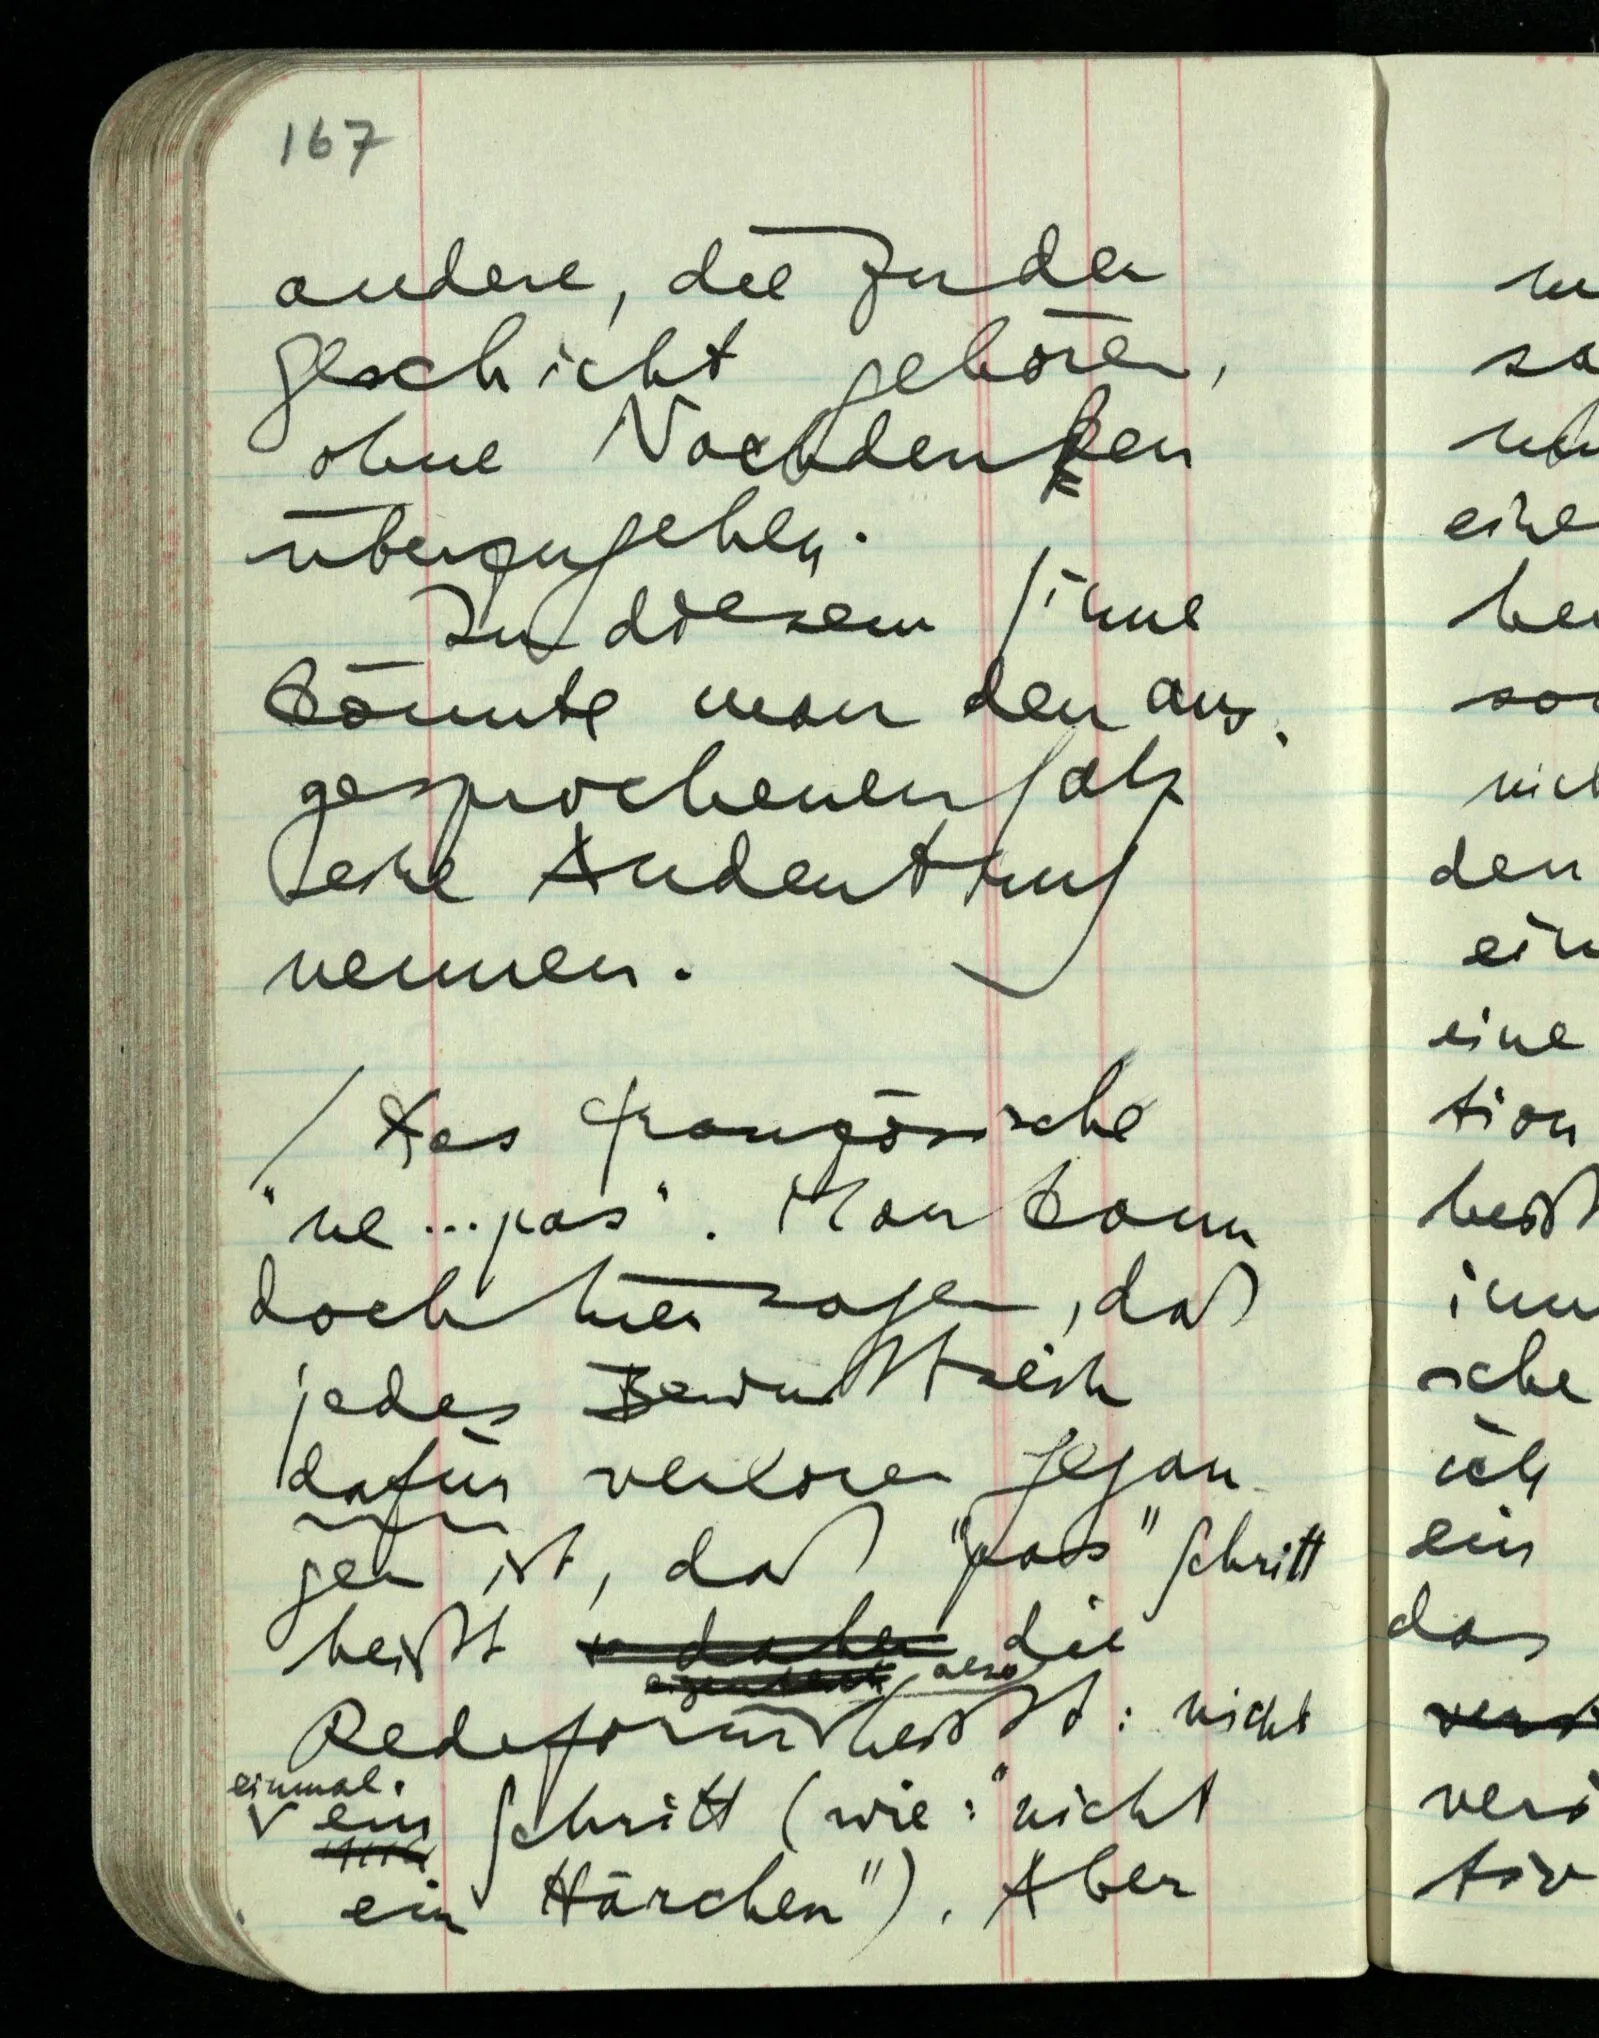 167
andere, die zu der
Geschicht gehören,
ohne Nachdenken
überzugehen.
In diesem Sinne
könnte man den aus-
gesprochenen Satz
eine Andeutung
nennen.
/ Das französische
"ne ... pas". Man kann
doch hier sagen, daß
jedes Bewußtsein
dafür verloren gegan-
gen ist, daß "pas" Schritt
heißt daher die
eigentlich also
Redeform heißt: nicht
einmal.
ein Schritt (wie: "nicht
ein Härchen"). Aber
eine
den
eine
tion
sche
ich
ein
das
veri
tiv